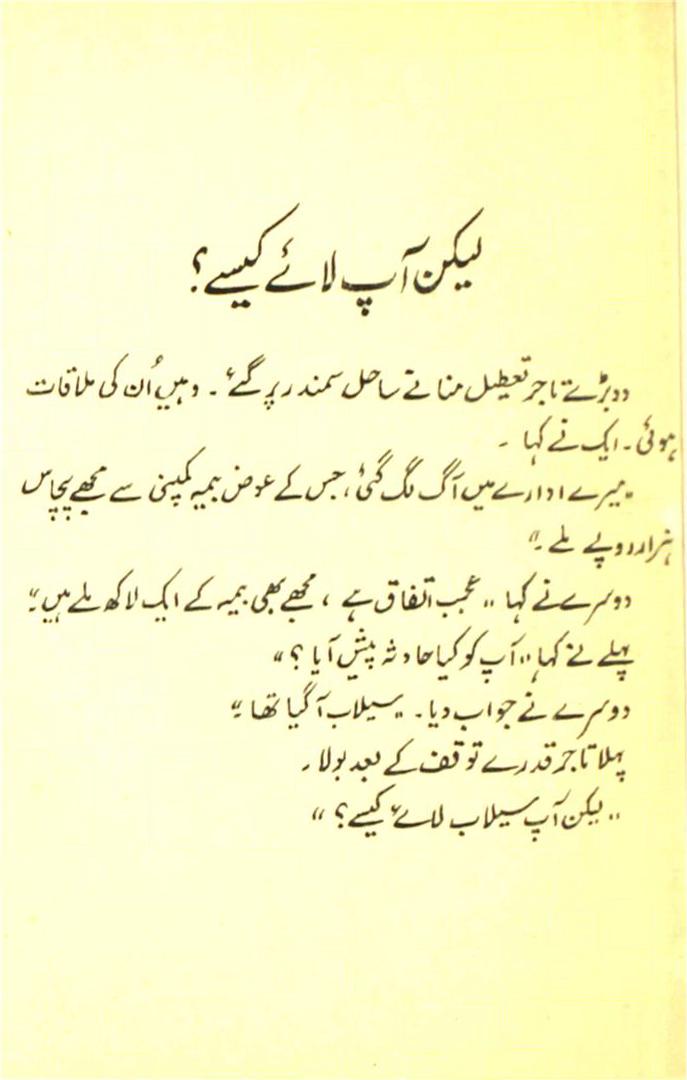 لیکن آپ لائے کیسے؟
دو بڑے تاجر تعطیل منانے ساحل سمندر پر گئے۔ وہیں اُن کی ملاقات
ہوئی۔ ایک نے کہا۔
"میرے ادارے میں آگ لگ گئی، جس کے عوض بیمہ کمپنی سے مجھے پچاس
ہزار روپے ملے۔"
دوسرے نے کہا "عجب اتفاق ہے، مجھے بھی بیمہ کے ایک لاکھ ملے ہیں۔"
پہلے نے کہا "آپ کو کیا حادثہ پیش آیا؟"
دوسرے نے جواب دیا۔ "سیلاب آ گیا تھا۔"
پہلا تاجر قدرے توقف کے بعد بولا۔
"لیکن آپ سیلاب لائے کیسے؟"